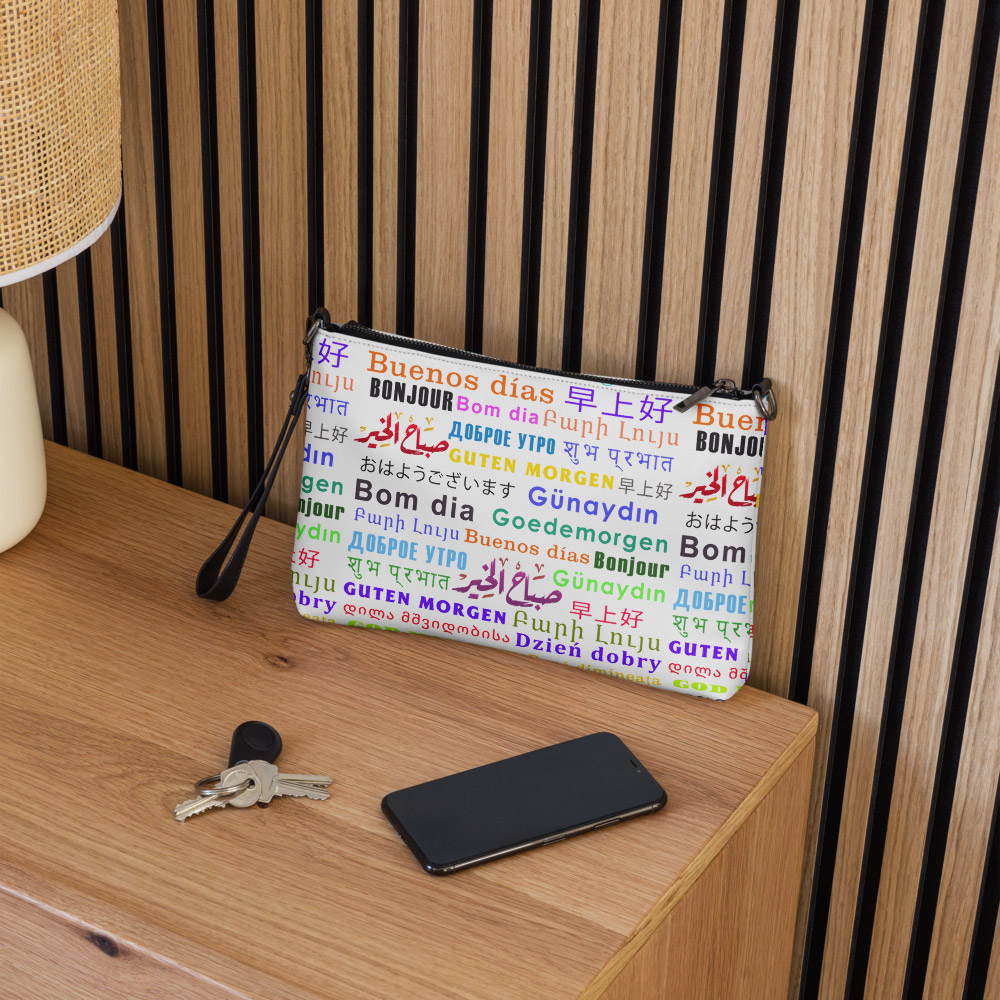 好 Buenos días 早上好 Buenos
Լույս BONJOUR Bom dia Բարի Լույս BONJOUR
प्रभात صباح الخير ДОБРОЕ УТРО शुभ प्रभात صباح الخير
早上好 GUTEN MORGEN 早上好
おはようございます Günaydın おはよう
Bom dia Goedemorgen Bom
Բարի Լույս Buenos días Bonjour Բարի Լույս
ДОБРОЕ УТРО صباح الخير Günaydın ДОБРОЕ
शुभ प्रभात 早上好 शुभ
GUTEN MORGEN Բարի Լույս GUTEN
დილა მშვიდობისა Dzień dobry დილა
dimineata GOD